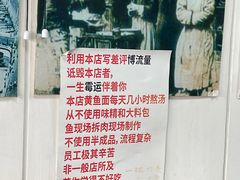 利用本店写差评博流量
诋毁本店者,
一生霉运伴着你
本店黄鱼面每天几小时熬汤
从不使用味精和大料包
鱼现场拆肉现场制作
不使用半成品,流程复杂
员工极其辛苦
非一般店所及